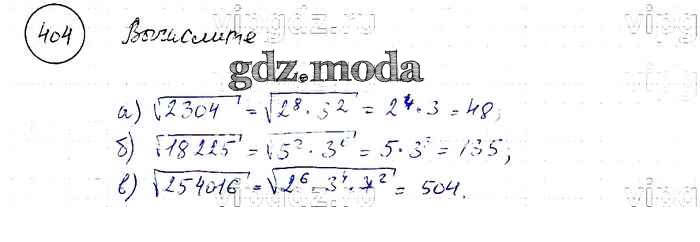 404 Вычислите
gdz.moda
а) √2304 = √2⁸ · 3² = 2⁴ · 3 = 48;
б) √18225 = √5² · 3⁶ = 5 · 3³ = 135;
в) √254016 = √2⁶ · 3⁴ · 7² = 504.